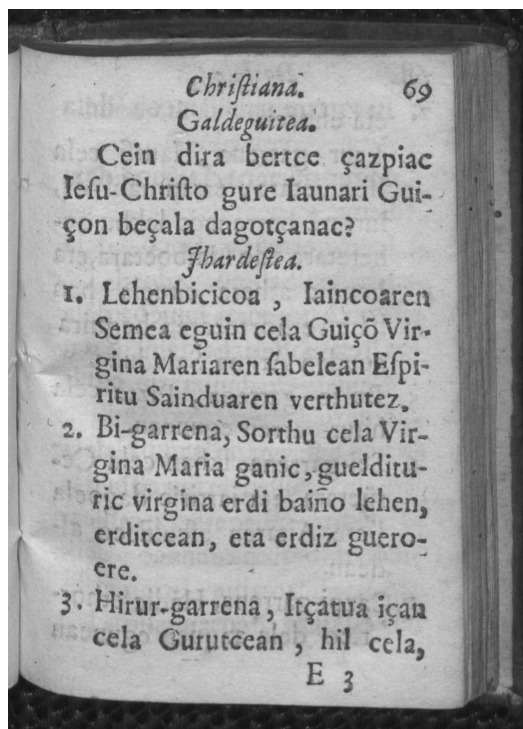 Chriſtiana. 69
Galdeguitea.
Cein dira bertce çazpiac
Ieſu-Chriſto gure Iaunari Gui-
çon beçala dagotçanac?
Jhardeſtea.
1. Lehenbicicoa , Iaincoaren
Semea eguin cela Guiçõ Vir-
gina Mariaren ſabelean Eſpi-
ritu Sainduaren verthutez.
2. Bi-garrena, Sorthu cela Vir-
gina Maria ganic, gueldituʼ-
ric virgina erdi baiño lehen,
erditcean, eta erdiz guero-
ere.
3. Hirur-garrena, Itçatua içan
cela Gurutcean , hil cela,
E 3